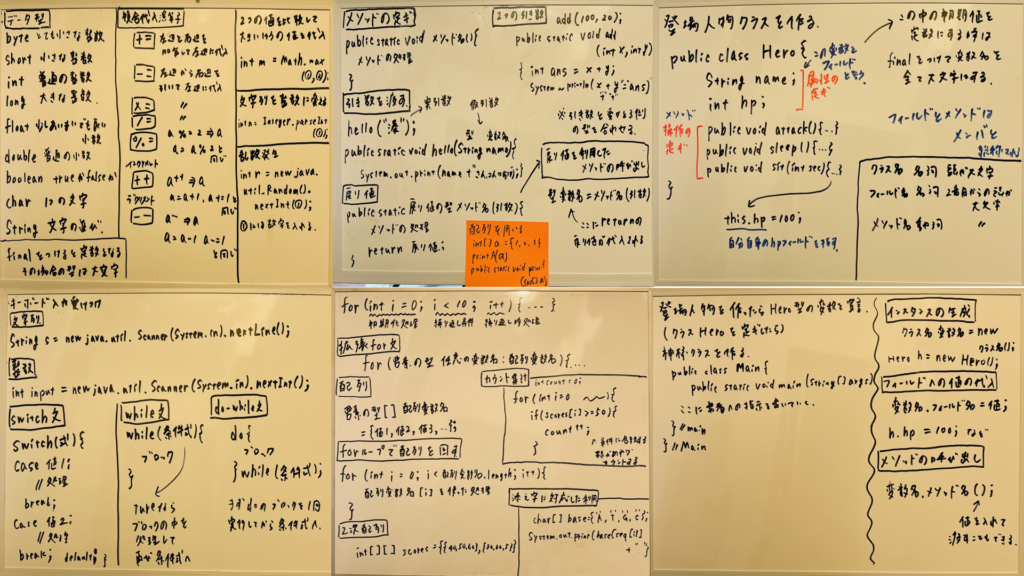 データ型
byte とても小さな整数
short 小さな整数
int 普通の整数
long 大きな整数
float 少しあいまいでも良い
小数
double 普通の小数
boolean trueかfalseか
char 1つの文字
String 文字の並び
finalをつけると定数となる
その場合の型は大文字
複合代入演算子
+= 左辺と右辺を
加算して左辺に代入
-= 左辺から右辺を
引いて左辺に代入
×= 〃
/= 〃
%= a%=2⇒a
a=a%2と同じ
インクリメント
++ a++⇒a
a=a+1, a+=1と同じ
デクリメント
-- a-⇒a
a=a-1 a-=1
と同じ
2つの値を比較して
大きいほうの値を代入
int m = Math.max
(①,②);
文字列を整数に変える
int n = Integer.parseInt
(①);
乱数発生
int r = new java.
util.Random().
nextInt(①);
①には数字を入れる。
メソッドの定義
public static void メソッド名(){
メソッドの処理
}
引き数を渡す
実引数
hello("湊");
仮引数
型 変数名
public static void hello(String name){
System.out.print(name+"さん、こんにちは");}
戻り値
public static 戻り値の型 メソッド名(引数){
メソッドの処理
return 戻り値;
}
2つの引き数
add(100,20);
public static void add
(int x, int y)
{ int ans = x + y;
System~println(x+y=ans)
※引き数と書ける
の型を合わせる。
戻り値を利用した
メソッドの呼び出し
型 変数名=メソッド名(引数)
ここにreturnの
戻り値が代入される
配列を用いる
int[] a = {1,2,3}
printA(a)
public static void print
(int[] a)
登場人物クラスを作る。
public class Hero{
String name;
int hp;
この変数を
フィールド
と言う
属性の
定義
メソッド
操作の
定義
public void attack(){…}
public void sleep(){…}
public void sit(int sec){…}
}
this.hp=100;
自分自身のhpフィールドを指す。
この中の初期値を
定数にする時は
finalをつけて変数名を
全て大文字にする。
フィールドとメソッドは
メンバと
総称される
クラス名 名詞 頭が大文字
フィールド名 名詞 2番目からの頭が
大文字
メソッド名 動詞 〃
キーボード入力受けつけ
文字列
String s = new java.util.Scanner(System.in).nextLine();
整数
int input = new java.util.Scanner(System.in).nextInt();
switch文
switch(式){
case 値1;
//処理
break;
case 値2;
//処理
break; default; }
while文
while(条件式){
ブロック
}
tureなら
ブロックの中を
処理して
再び条件式へ
do-while文
do{
ブロック
}while(条件式);
まずdoのブロックを1回
実行してから条件式へ。
for (int i = 0; i < 10; i++){ …. }
初期化処理 繰り返し条件 繰り返し時処理
拡張for文
for (要素の型 任意の変数名:配列変数名){…
配列
要素の型[] 配列変数名
={値1, 値2, 値3, …};
forループで配列を回す
for (int i = 0; i < 配列変数名.length; i++){
配列変数名[i]を使った処理
}
2次配列
int[][] scores = {{40,50,60},{80,60,55}}
カウント集計
int count=0;
for(int i=0 ~){
if(scores[i]>=50){
count++;
}
条件に合致する
カウントする
添え字に対応した利用
char[] base={'A','T','G','C'};
System.out.print(base[seq[i]]
+" ")
登場人物を作ったらHero型の変数を宣言。
(クラスHeroを定義したら)
神様クラスを作る。
public class Main{
public static void main(String[] args)
ここに勇者への指示を書いていく。
}//main
}//Main
インスタンスの生成
クラス名 変数名=new
クラス名();
Hero h = new Hero();
フィールドへの値の代入
変数名.フィールド名=値;
h.hp=100; など
メソッドの呼び出し
変数名.メソッド名();
値を入れて
渡すこともできる。